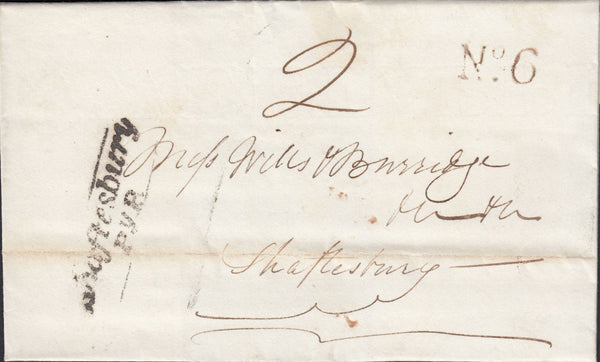 2
No. 6
Shaftesbury
Py P.
Mess Wills & Burridge
Shaftesbury